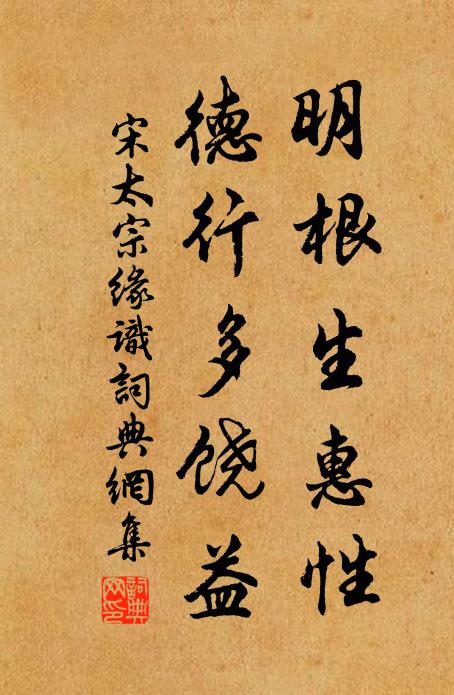 明根生惠性
德行多饶益
宋太宗緣識詞典網集
詞典網印